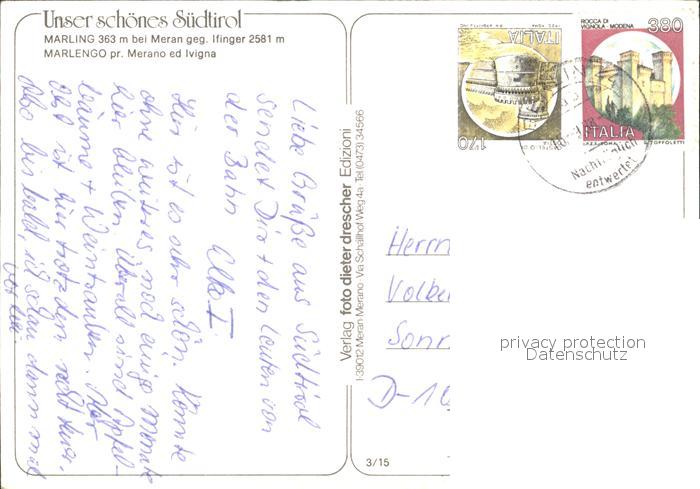 Unser schönes Südtirol
MARLING 363 m bei Meran geg. Ifinger 2581 m
MARLENGO pr. Merano ed Ivigna
Liebe Grüße aus Südtirol
sendet Dir + den Leuten von
der Bahn
Elke I.
Hier ist es sehr schön. Könnte
ohne weiteres noch einige Monate
hier bleiben. Überall sind Apfel-
bäume + Weintrauben. Aber
Obst ist hier trotzdem nicht
Also bis bald, ich schau dann mal
vorbei.
Verlag foto dieter drescher Edizioni
I-39012 Meran Merano · Via Schallhof Weg 4a · Tel (0473) 34566
3/15
ITALIA
170
ROCCA DI
VIGNOLA - MODENA
380
ITALIA
Nachträglich
entwertet
Herrn
Volke
Sonn
D-10
privacy protection
Datenschutz